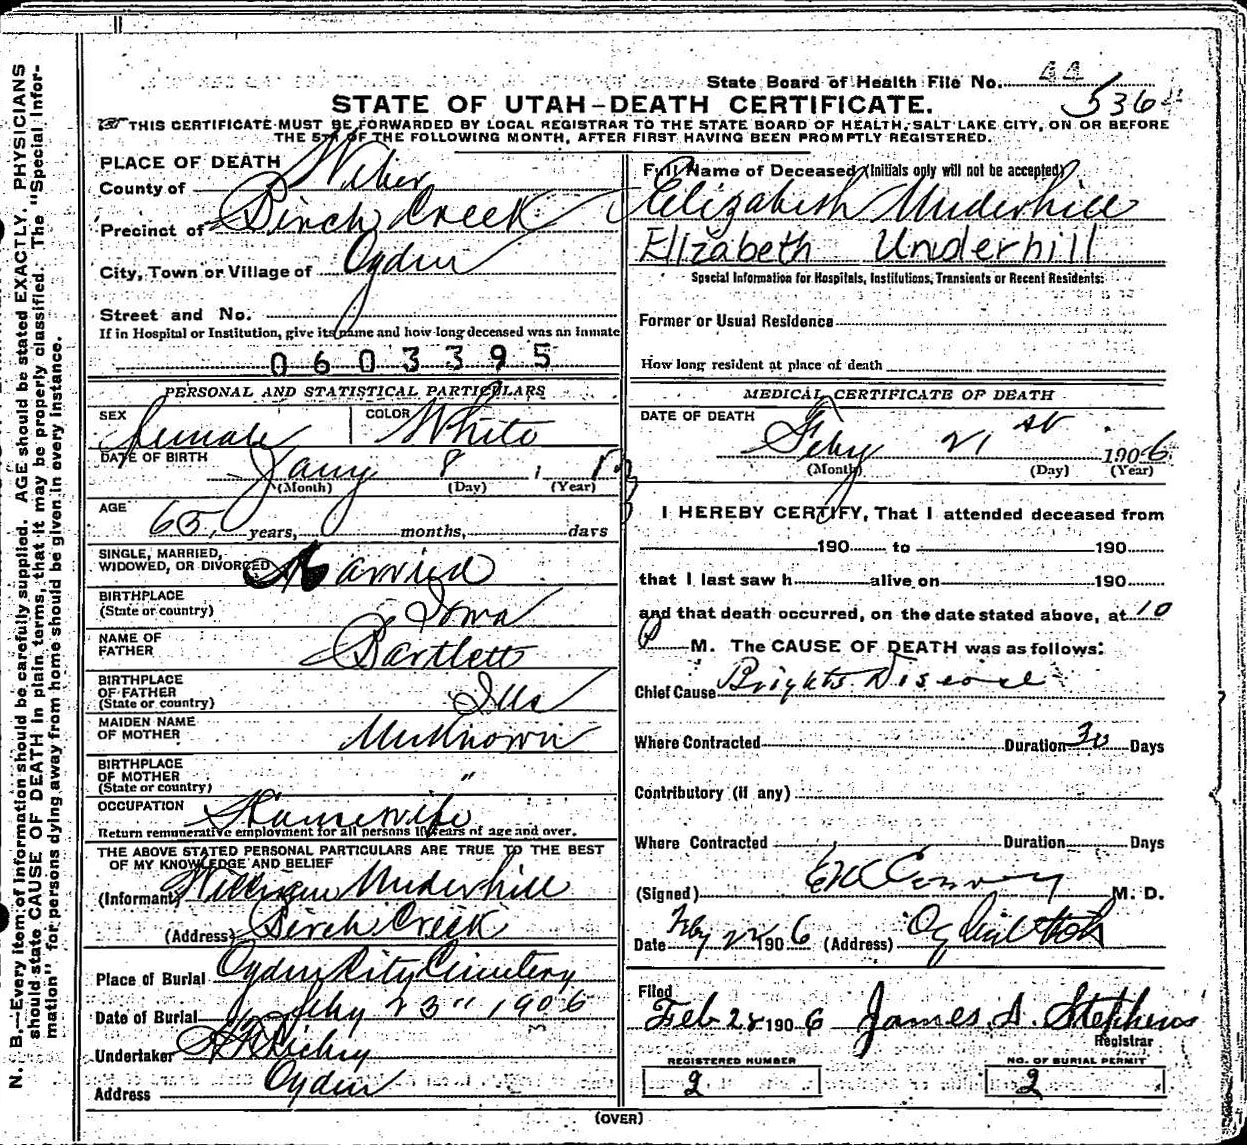 State Board of Health File No. 44
536
STATE OF UTAH-DEATH CERTIFICATE.
THIS CERTIFICATE MUST BE FORWARDED BY LOCAL REGISTRAR TO THE STATE BOARD OF HEALTH, SALT LAKE CITY, ON OR BEFORE
THE 5TH OF THE FOLLOWING MONTH, AFTER FIRST HAVING BEEN PROMPTLY REGISTERED.
PLACE OF DEATH
County of Weber
Precinct of Birch Creek
City, Town or Village of Ogden
Street and No.
If in Hospital or Institution, give its name and how long deceased was an inmate
0603395
PERSONAL AND STATISTICAL PARTICULARS
SEX Female COLOR White
DATE OF BIRTH
Jany 8
(Month) (Day) (Year)
AGE 65 years, months, days
SINGLE, MARRIED,
WIDOWED, OR DIVORCED Married
BIRTHPLACE
(State or country) Iowa
NAME OF
FATHER Bartlett
BIRTHPLACE
OF FATHER
(State or country) Ills
MAIDEN NAME
OF MOTHER Unknown
BIRTHPLACE
OF MOTHER
(State or country) "
OCCUPATION Housewife
Return remunerative employment for all persons 10 years of age and over.
THE ABOVE STATED PERSONAL PARTICULARS ARE TRUE TO THE BEST
OF MY KNOWLEDGE AND BELIEF
(Informant) William Underhill
(Address) Birch Creek
Place of Burial Ogden City Cemetery
Date of Burial Feby 23" 1906
Undertaker
Address Ogden
Full Name of Deceased (Initials only will not be accepted)
Elizabeth Underhill
Elizabeth Underhill
Special Information for Hospitals, Institutions, Transients or Recent Residents:
Former or Usual Residence
How long resident at place of death
MEDICAL CERTIFICATE OF DEATH
DATE OF DEATH
Feby 21st 1906
(Month) (Day) (Year)
I HEREBY CERTIFY, That I attended deceased from
190 to 190
that I last saw h alive on 190
and that death occurred, on the date stated above, at 10
P M. The CAUSE OF DEATH was as follows:
Chief Cause Brights Disease
Where Contracted Duration 30 Days
Contributory (if any)
Where Contracted Duration Days
(Signed) M. D.
Date Feby 22 1906 (Address) Ogden Utah
Filed
Feb 28 1906 James S. Stephens
Registrar
REGISTERED NUMBER
2
NO. OF BURIAL PERMIT
2
(OVER)
N. B.—Every item of information should be carefully supplied. AGE should be stated EXACTLY. PHYSICIANS
should state CAUSE OF DEATH in plain terms, that it may be properly classified. The "Special Infor-
mation" for persons dying away from home should be given in every instance.